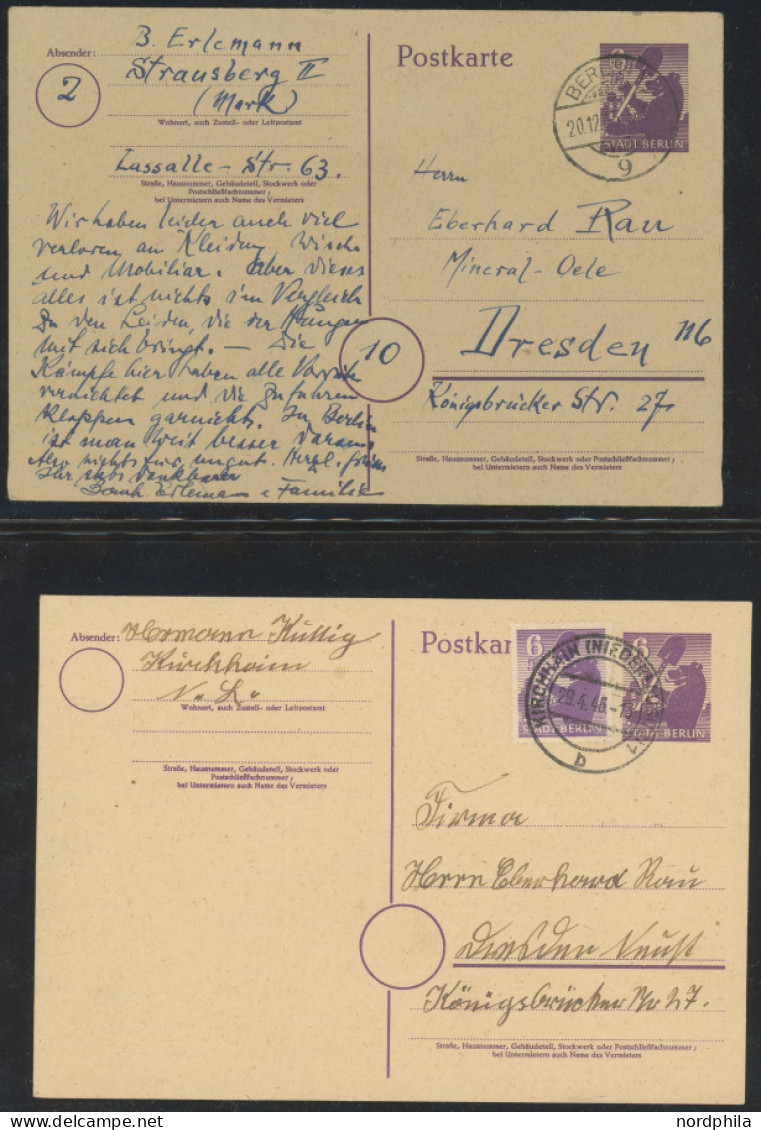 Absender: B. Erlemann
Strausberg II
(Mark)
2
Wohnort, auch Zustell- oder Leitpostamt
Lassalle-Str. 63.
Straße, Hausnummer, Gebäudeteil, Stockwerk oder
Postschließfachnummer;
bei Untermietern auch Name des Vermieters
Wir haben leider auch viel
verloren an Kleidung Wäsche
und Mobiliar. Aber dieses
alles ist nichts im Vergleich
zu den Leiden, die der Hunger
mit sich bringt. — Die
Kämpfe hier haben alle Vorräte
vernichtet und die Zufuhren
klappen garnicht. In Berlin
ist man weit besser daran.
Also nichts für ungut. Herzl. Grüße
Ihr stets dankbarer
Erlemann u. Familie
Postkarte
6
BERLIN
20.12
9
STADT BERLIN
Herrn
Eberhard Rau
Mineral-Oele
10
Dresden N6
Königsbrücker Str. 27
Straße, Hausnummer, Gebäudeteil, Stockwerk oder Postschließfachnummer;
bei Untermietern auch Name des Vermieters
Absender: Hermann Küttig
Kirchhain
N.-L.
Wohnort, auch Zustell- oder Leitpostamt
Straße, Hausnummer, Gebäudeteil, Stockwerk oder
Postschließfachnummer;
bei Untermietern auch Name des Vermieters
Postkar
6
6
KIRCHHAIN (NIEDERL
29.4.46.-18
b
STADT BERLIN
STADT BERLIN
Firma
Herrn Eberhard Rau
Dresden Neust
Königsbrücker Nr 27.
Straße, Hausnummer, Gebäudeteil, Stockwerk oder Postschließfachnummer;
bei Untermietern auch Name des Vermieters
nordphila